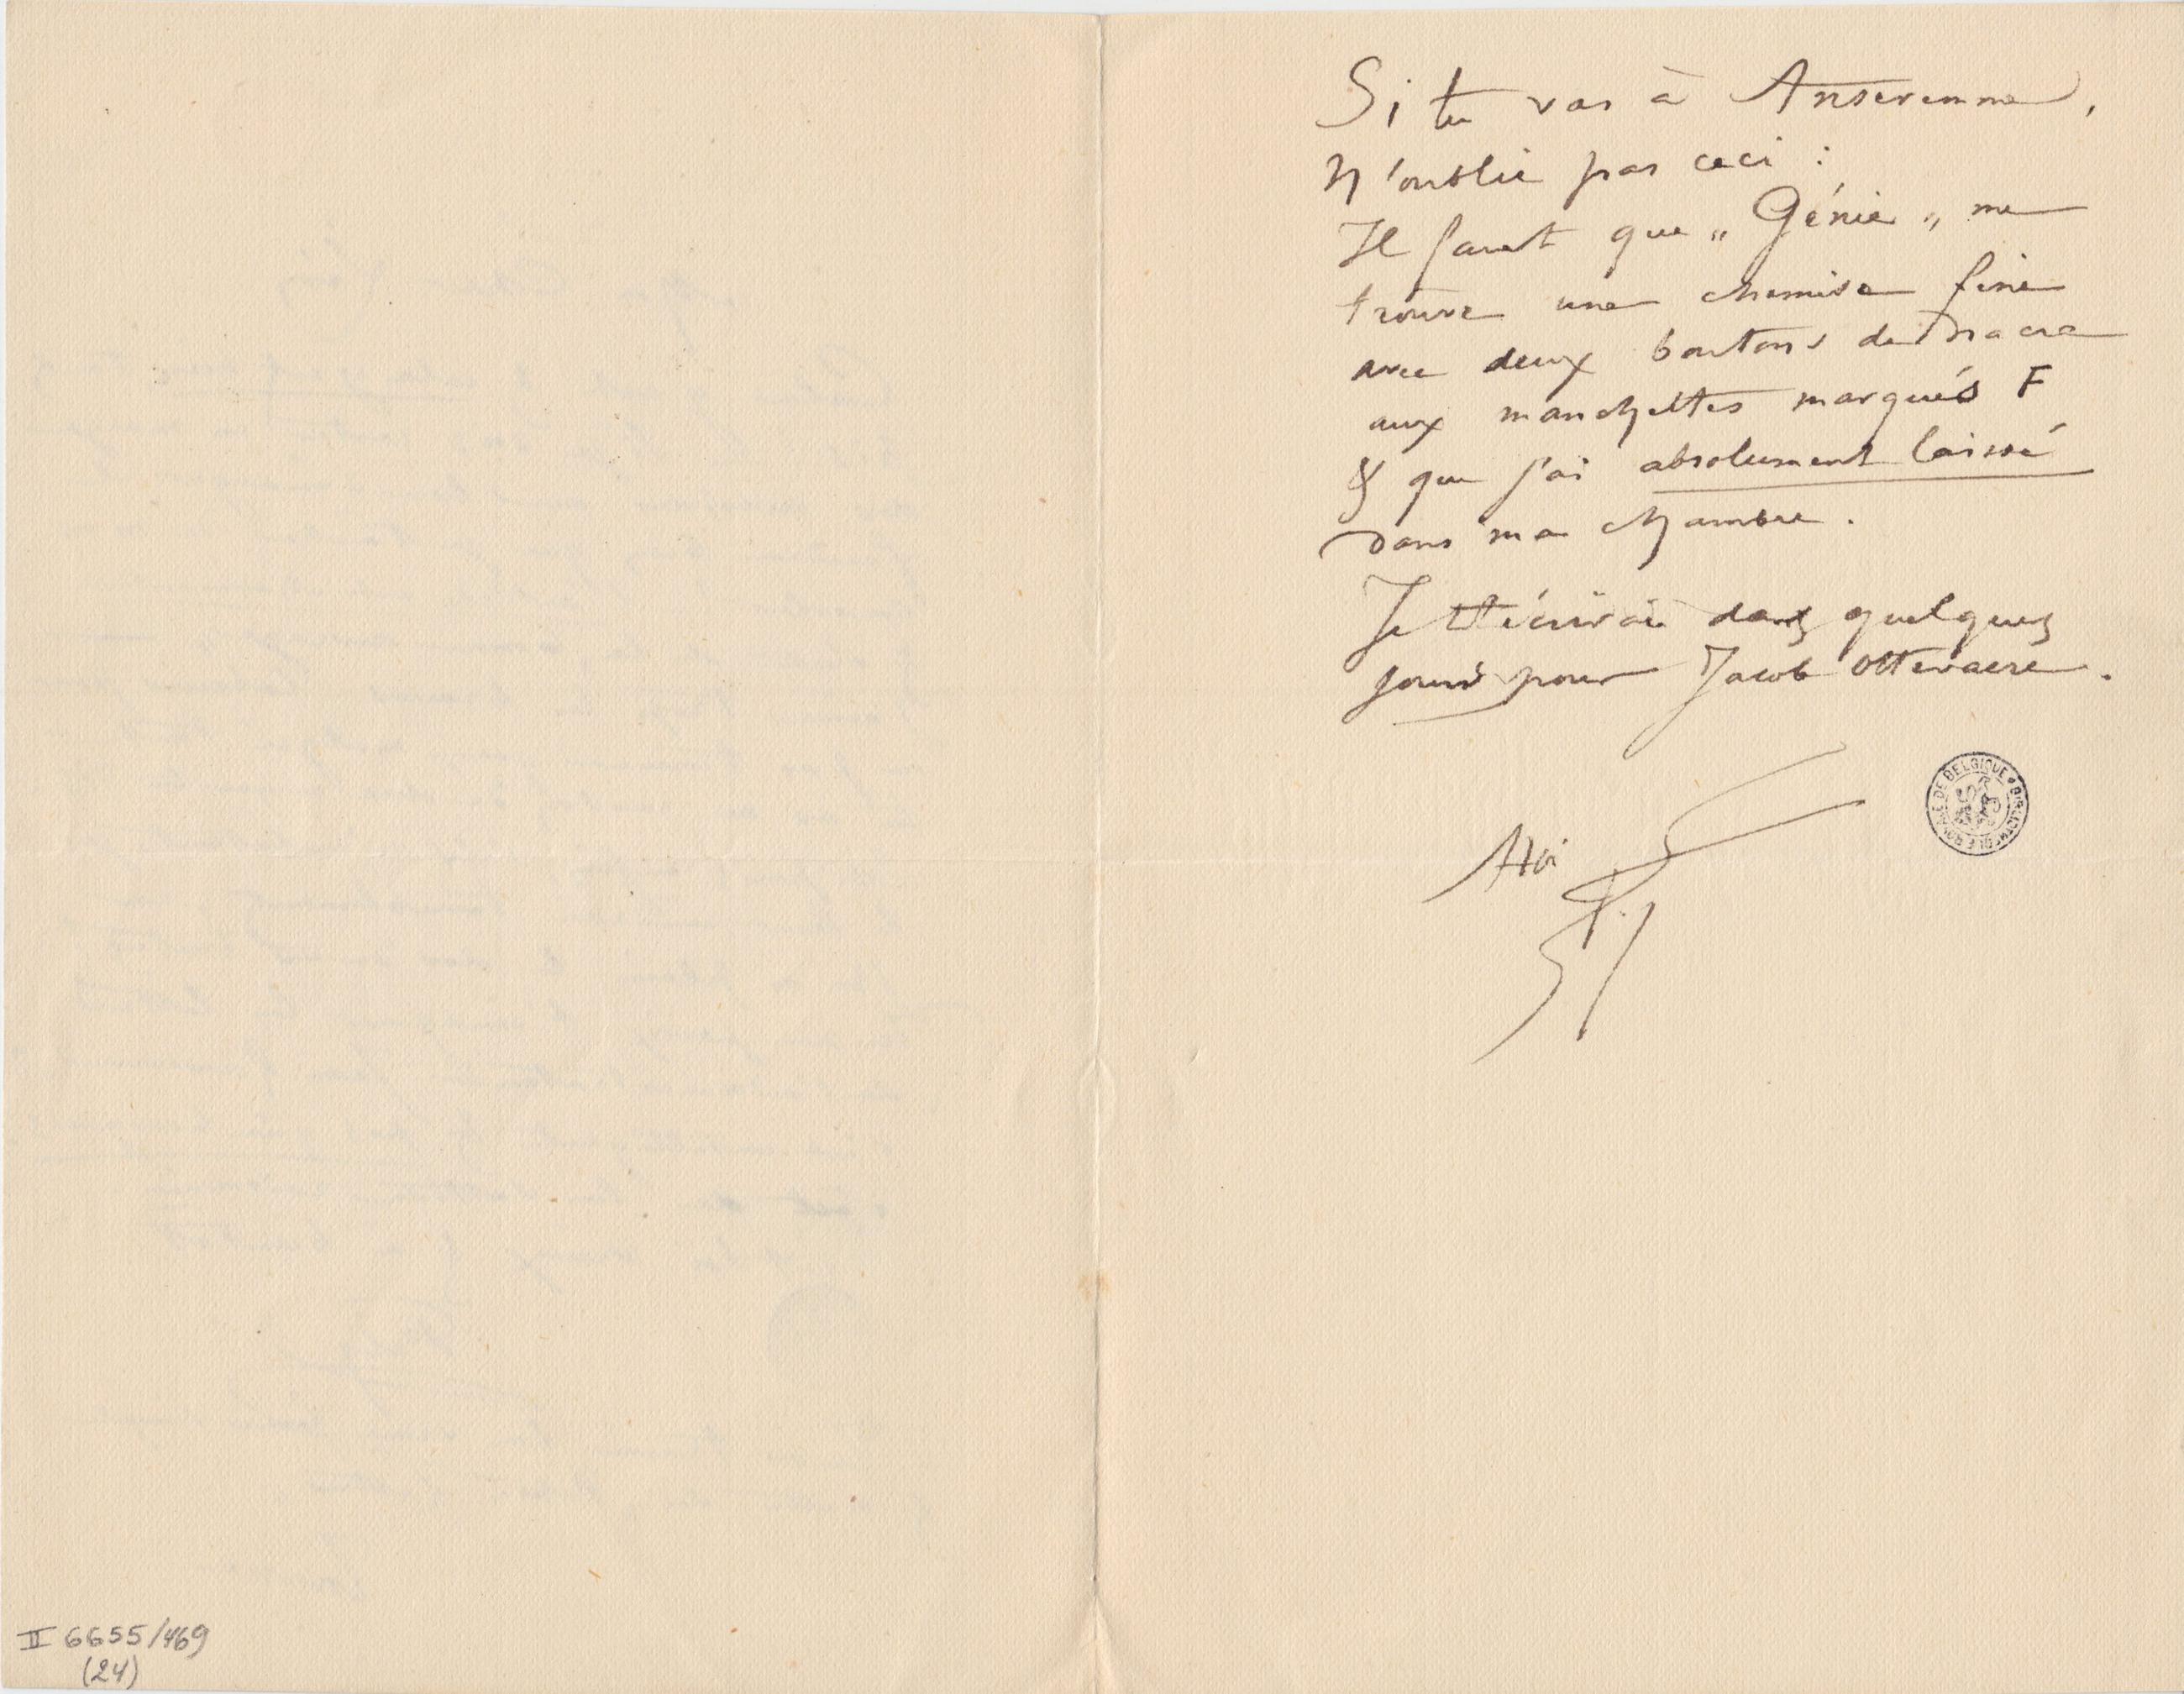 Si tu vas à Anseremme,
N'oublie pas ceci :
Il faut que „ Génie „ me
trouve une chemise fine
avec deux boutons de nacre
aux manchettes marqués F
& que j'ai absolument laissé
dans ma chambre.
Je t'écrirai dans quelques
jours pour Jacob Ottevaere.
BIBLIOTHEQUE ROYALE DE BELGIQUE
II 6655/469
(24)